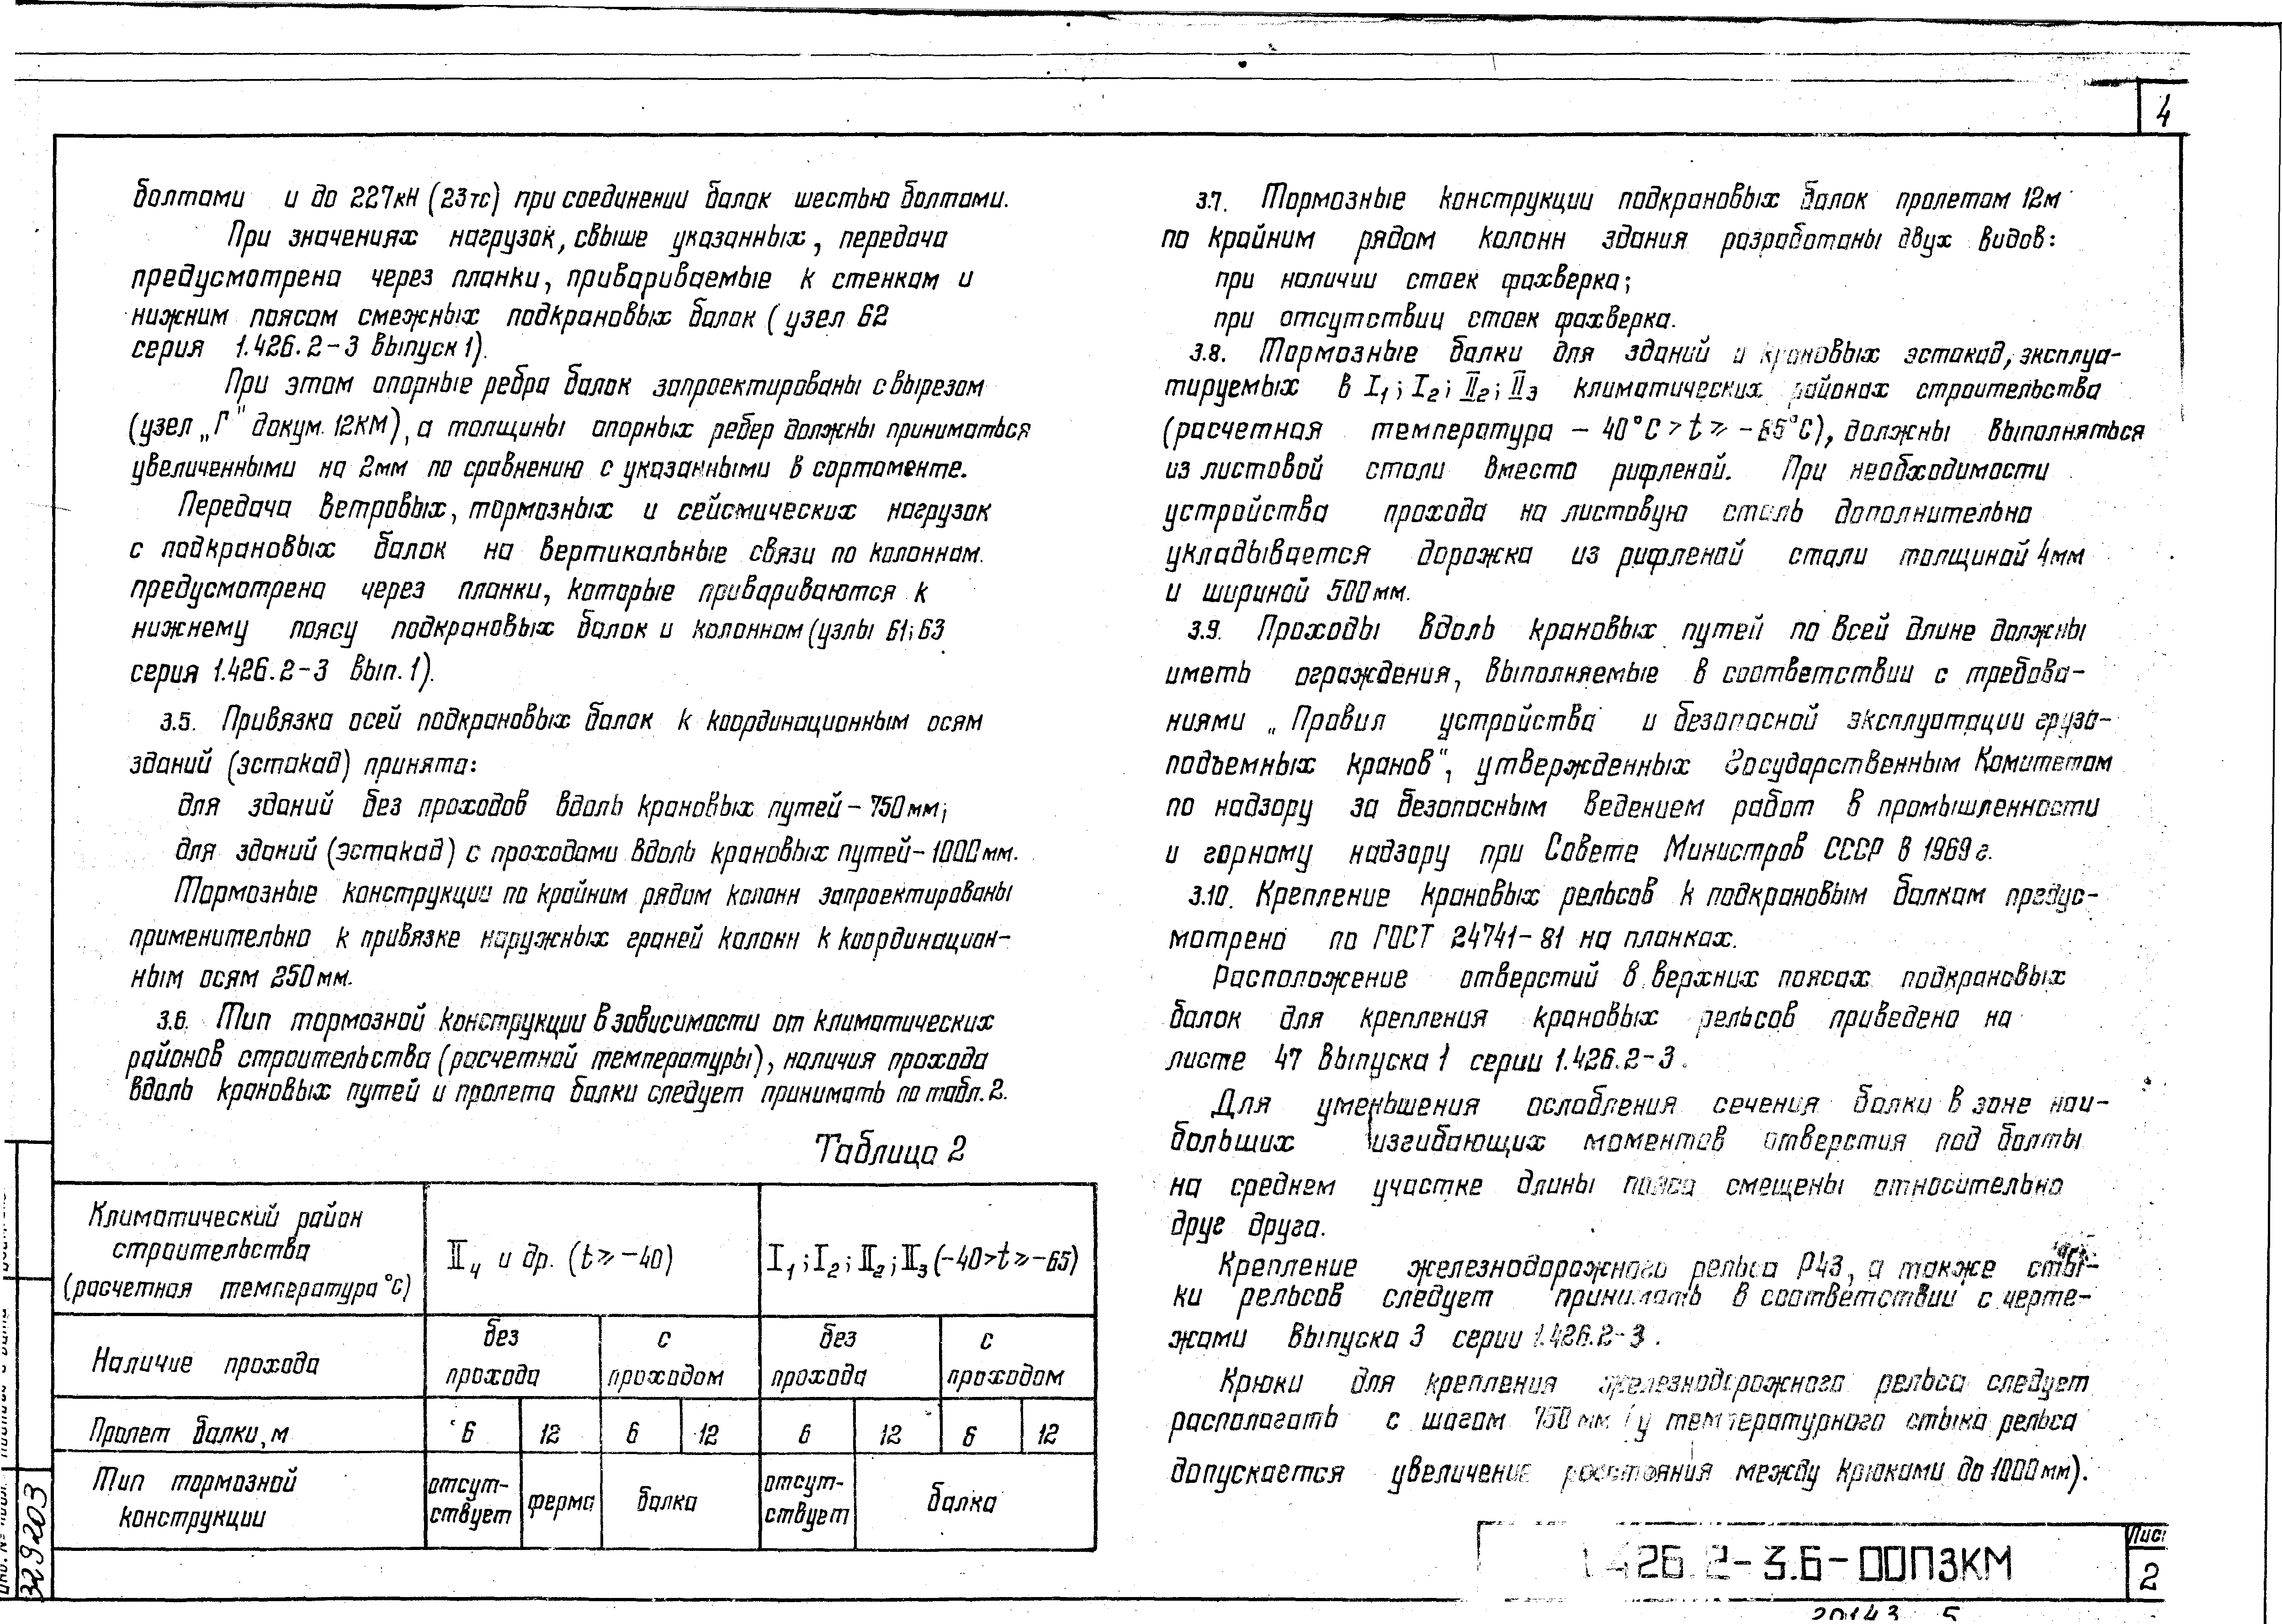 4
болтами и до 227кН (23тс) при соединении балок шестью болтами.
При значениях нагрузок, свыше указанных, передача
предусмотрена через планки, привариваемые к стенкам и
нижним поясам смежных подкрановых балок (узел 62
серия 1.426.2-3 выпуск 1).
При этом опорные ребра балок запроектированы с вырезом
(узел „Г" докум. 12КМ), а толщины опорных ребер должны приниматься
увеличенными на 2мм по сравнению с указанными в сортаменте.
Передача ветровых, тормозных и сейсмических нагрузок
с подкрановых балок на вертикальные связи по колоннам.
предусмотрена через планки, которые привариваются к
нижнему поясу подкрановых балок и колоннам (узлы 61; 63
серия 1.426.2-3 вып. 1).
3.5. Привязка осей подкрановых балок к координационным осям
зданий (эстакад) принята:
для зданий без проходов вдоль крановых путей - 750мм;
для зданий (эстакад) с проходами вдоль крановых путей - 1000мм.
Тормозные конструкции по крайним рядам колонн запроектированы
применительно к привязке наружных граней колонн к координацион-
ным осям 250мм.
3.6. Тип тормозной конструкции в зависимости от климатических
районов строительства (расчетной температуры), наличия прохода
вдоль крановых путей и пролета балки следует принимать по табл. 2.
Таблица 2
Климатический район
строительства
(расчетная температура °С)
II₄ и др. (t ⩾ -40)
I₁; I₂; II₂; II₃ (-40 > t ⩾ -65)
Наличие прохода
без
прохода
с
проходом
без
прохода
с
проходом
Пролет балки, м
6 12 6 12 6 12 6 12
Тип тормозной
конструкции
отсут-
ствует
ферма
балка
отсут-
ствует
балка
3.7. Тормозные конструкции подкрановых балок пролетом 12м
по крайним рядам колонн здания разработаны двух видов:
при наличии стоек фахверка;
при отсутствии стоек фахверка.
3.8. Тормозные балки для зданий и крановых эстакад, эксплуа-
тируемых в I₁; I₂; II₂; II₃ климатических районах строительства
(расчетная температура - 40°С > t ⩾ -65°С), должны выполняться
из листовой стали вместо рифленой. При необходимости
устройства прохода на листовую сталь дополнительно
укладывается дорожка из рифленой стали толщиной 4мм
и шириной 500мм.
3.9. Проходы вдоль крановых путей по всей длине должны
иметь ограждения, выполняемые в соответствии с требова-
ниями „Правил устройства и безопасной эксплуатации грузо-
подъемных кранов", утвержденных Государственным Комитетом
по надзору за безопасным ведением работ в промышленности
и горному надзору при Совете Министров СССР в 1969г.
3.10. Крепление крановых рельсов к подкрановым балкам предус-
мотрено по ГОСТ 24741-81 на планках.
Расположение отверстий в верхних поясах подкрановых
балок для крепления крановых рельсов приведено на
листе 47 выпуска 1 серии 1.426.2-3.
Для уменьшения ослабления сечения балки в зоне наи-
больших изгибающих моментов отверстия под болты
на среднем участке длины пояса смещены относительно
друг друга.
Крепление железнодорожного рельса Р43, а также сты-
ки рельсов следует принимать в соответствии с черте-
жами выпуска 3 серии 1.426.2-3.
Крюки для крепления железнодорожного рельса следует
располагать с шагом 750мм (у температурного стыка рельса
допускается увеличение расстояния между крюками до 1000мм).
1.426.2-3.6-00ПЗКМ
Лист
2
329203
20143 5